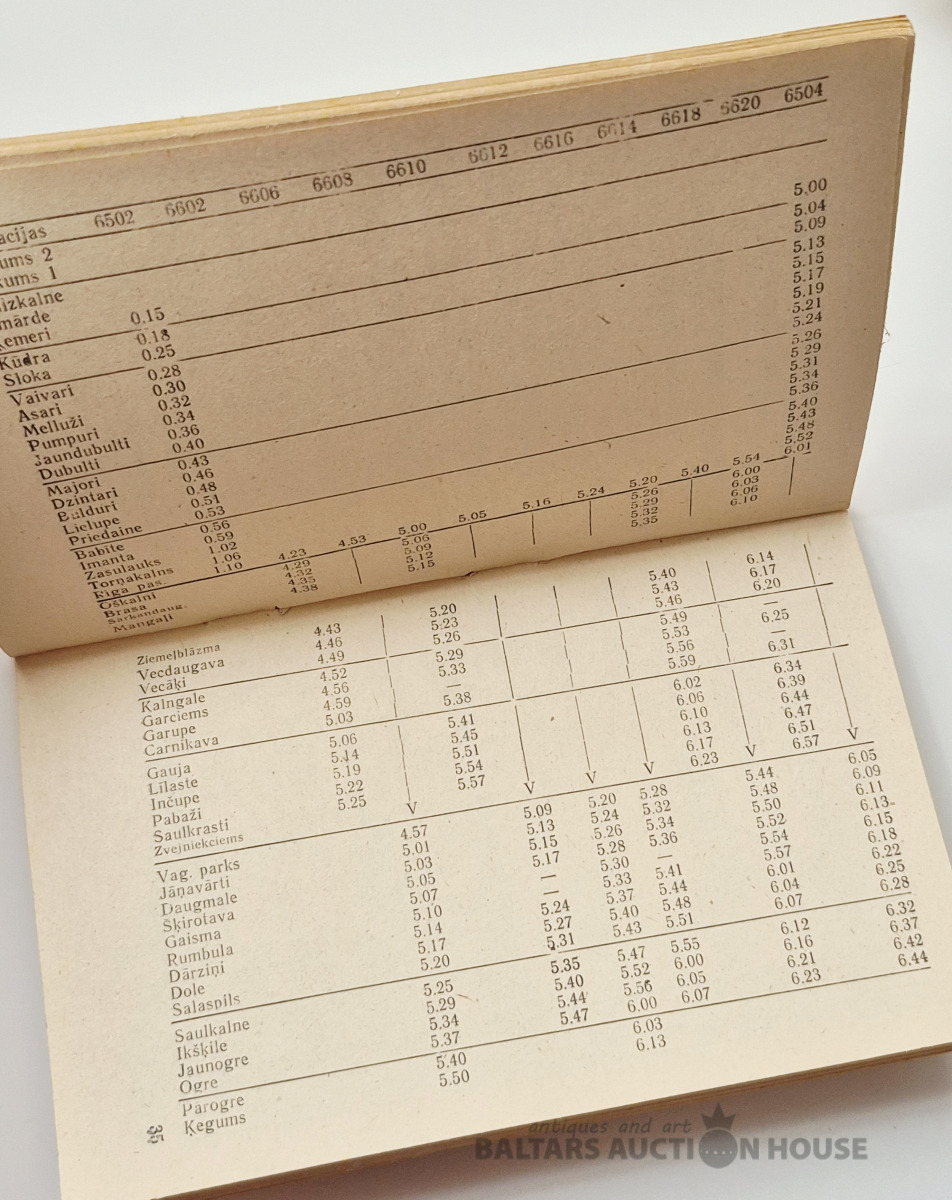 acijas 6502 6602 6606 6608 6610 6612 6616 6614 6618 6620 6504
ums 2
kums 1
izkalne
mārde
Ķemeri 0.15 5.00
Kūdra 0.18 5.04
Sloka 0.25 5.09
Vaivari 0.28 5.13
Asari 0.30 5.15
Melluži 0.32 5.17
Pumpuri 0.34 5.19
Jaundubulti 0.36 5.21
Dubulti 0.40 5.24
Majori 0.43 5.26
Dzintari 0.46 5 29
Bulduri 0.48 5.31
Lielupe 0.51 5.34
Priedaine 0.53 5.36
Babīte 0.56 5.40
Imanta 0.59 5.43
Zasulauks 1.02 5.48
Torņakalns 1.06 5.52
Rīga pas. 1.10 4.23 4.53 5.00 5.05 5.16 5.24 5.20 5.40 5.54 6.01
Oškalni 4.29 5.06 5.26 6.00
Brasa 4.32 5.09 5.29 6.03
Sarkandaug. 4.35 5.12 5.32 6.06
Mangaļi 4.38 5.15 5.35 6.10
Ziemeļblāzma 4.43 5.20 5.40 6.14
Vecdaugava 4.46 5.23 5.43 6.17
Vecāķi 4.49 5.26 5.46 6.20
Kalngale 4.52 5.29 5.49 —
Garciems 4.56 5.33 5.53 6.25
Garupe 4.59 — 5.56 —
Carnikava 5.03 5.38 5.59 6.31
Gauja 5.06 5.41 6.02 6.34
Lilaste 5.14 5.45 6.06 6.39
Inčupe 5.19 5.51 6.10 6.44
Pabaži 5.22 5.54 6.13 6.47
Saulkrasti 5.25 5.57 6.17 6.51
Zvejniekciems 6.23 6.57
Vag. parks 4.57 5.09 5.20 5.28 5.44 6.05
Jāņavārti 5.01 5.13 5.24 5.32 5.48 6.09
Daugmale 5.03 5.15 5.26 5.34 5.50 6.11
Šķirotava 5.05 5.17 5.28 5.36 5.52 6.13
Gaisma 5.07 — 5.30 — 5.54 6.15
Rumbula 5.10 — 5.33 5.41 5.57 6.18
Dārziņi 5.14 5.24 5.37 5.44 6.01 6.22
Dole 5.17 5.27 5.40 5.48 6.04 6.25
Salaspils 5.20 5.31 5.43 5.51 6.07 6.28
Saulkalne 5.25 5.35 5.47 5.55 6.12 6.32
Ikšķile 5.29 5.40 5.52 6.00 6.16 6.37
Jaunogre 5.34 5.44 5.56 6.05 6.21 6.42
Ogre 5.37 5.47 6.00 6.07 6.23 6.44
Pārogre 5.40 6.03
Ķegums 5.50 6.13
35
antiques and art
BALTARS AUCTION HOUSE